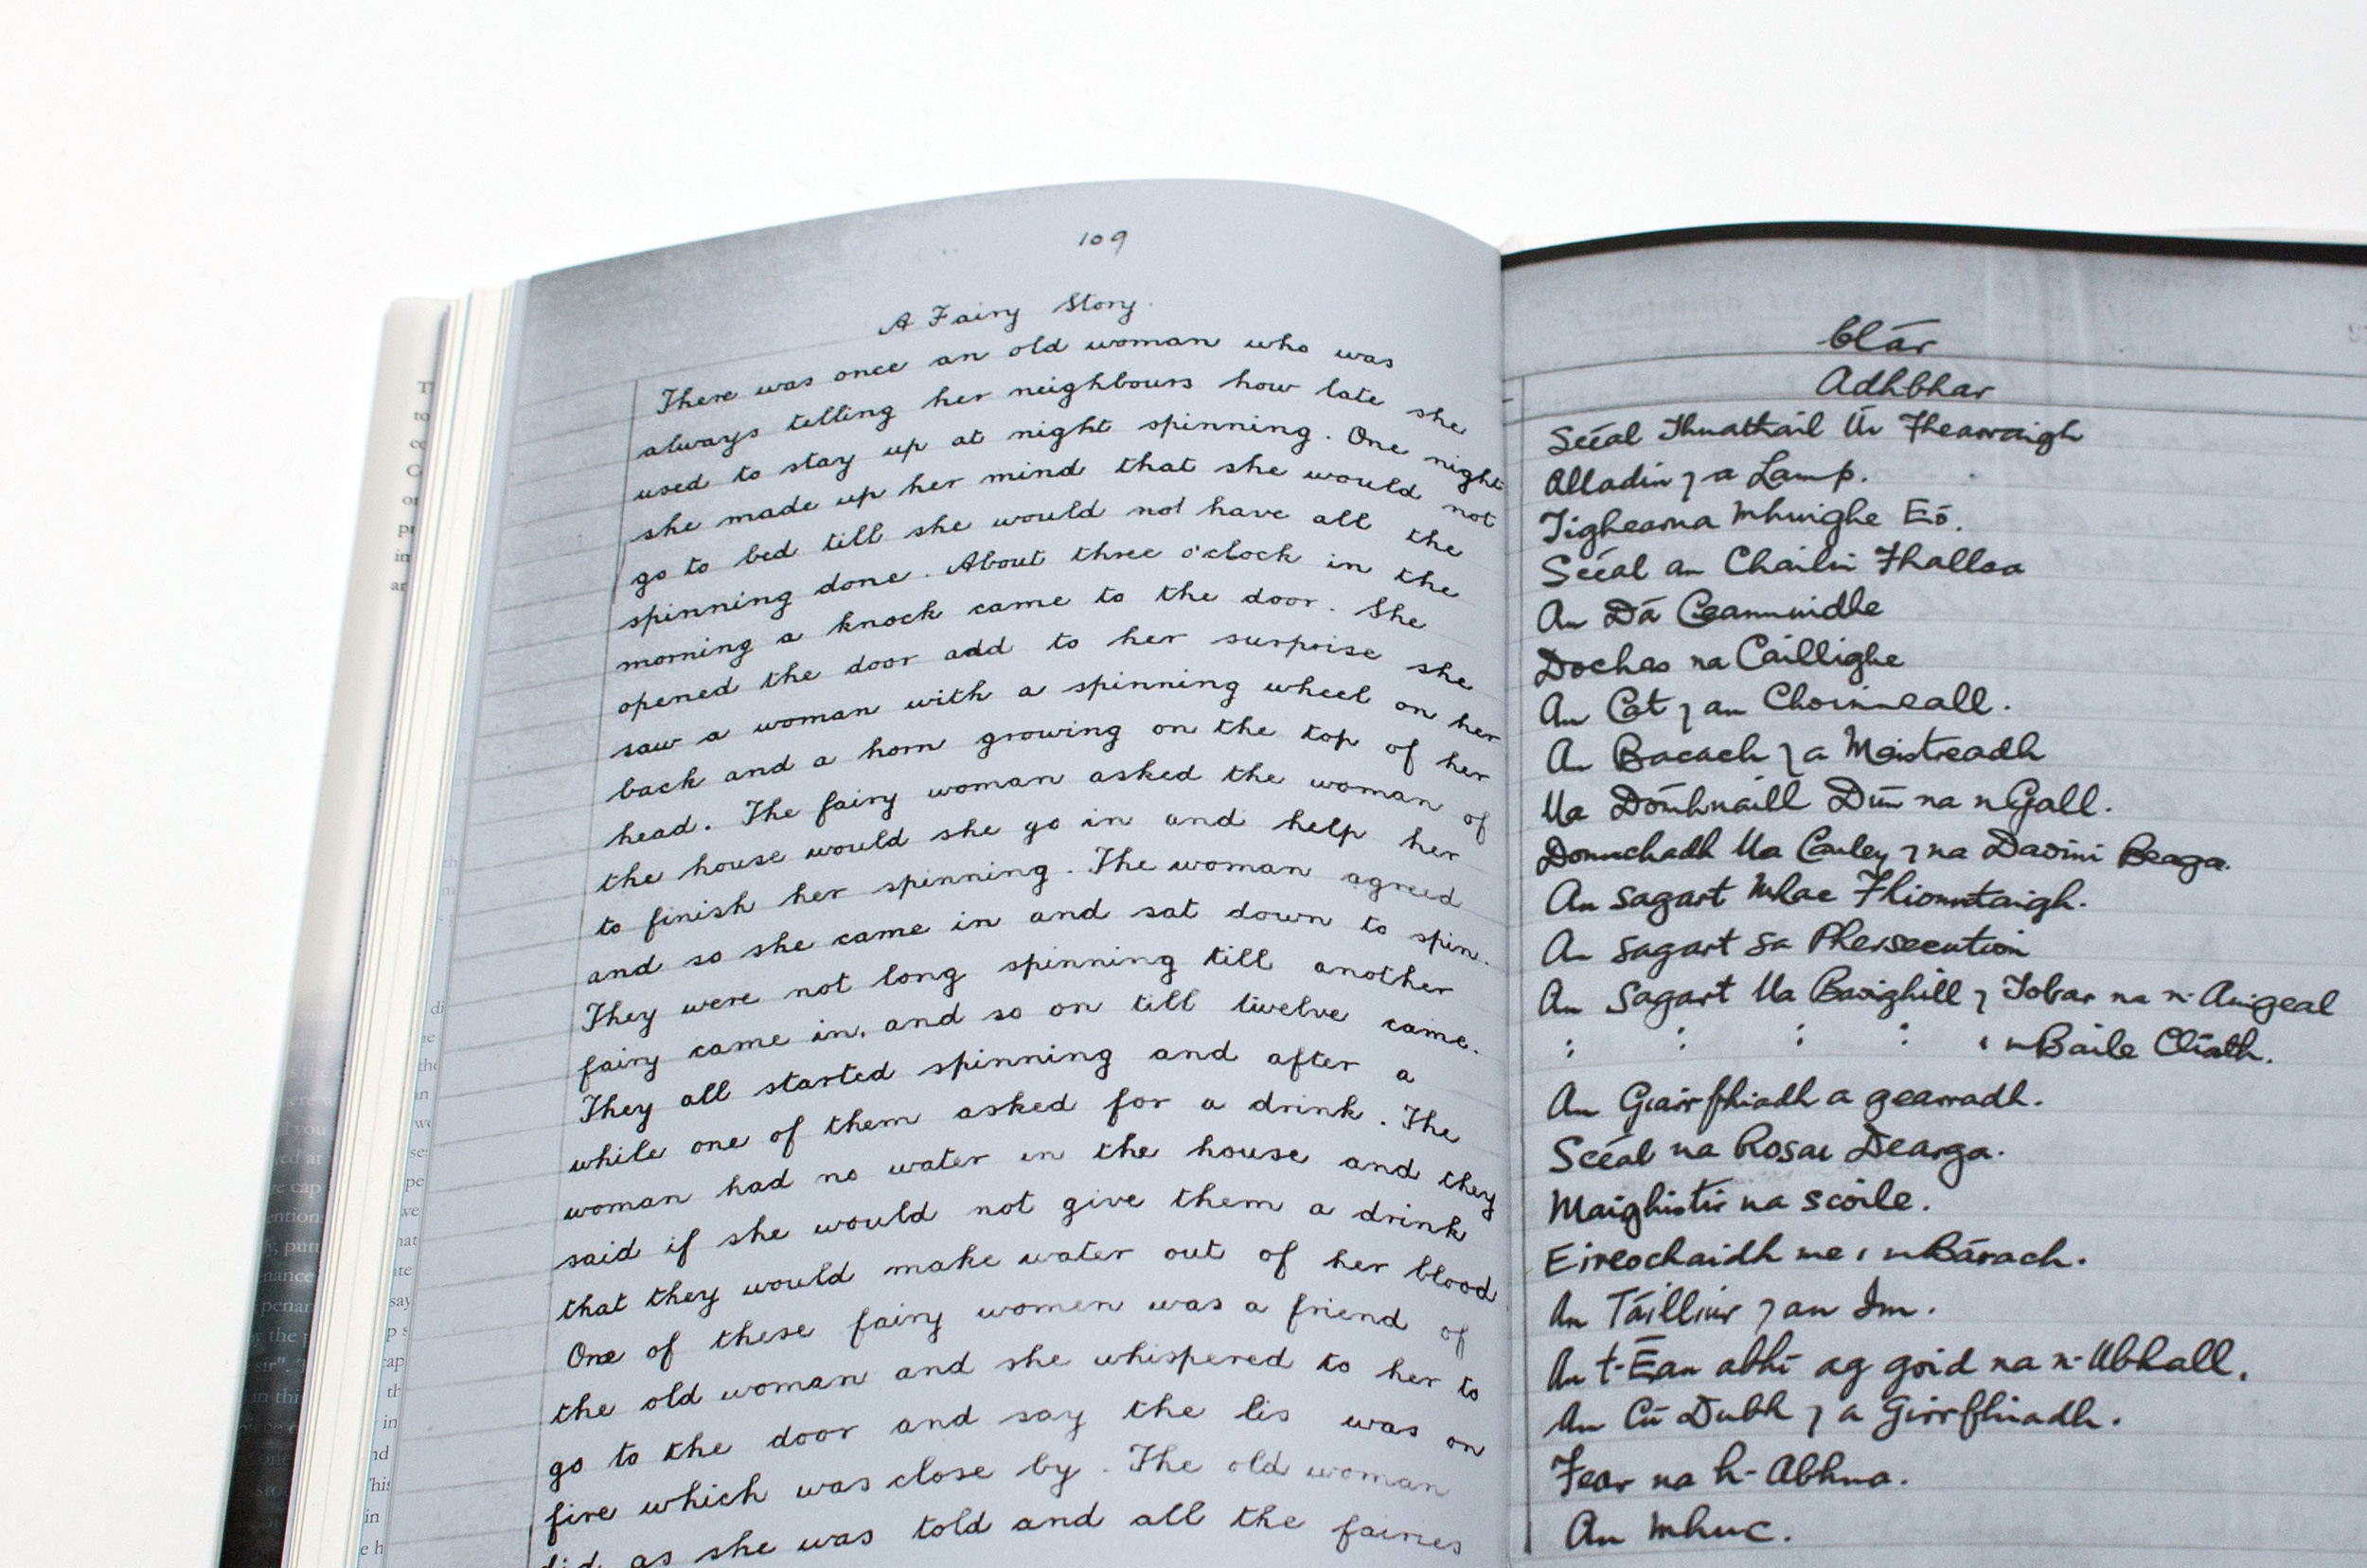 109
A Fairy Story.
There was once an old woman who was
always telling her neighbours how late she
used to stay up at night spinning. One night
she made up her mind that she would not
go to bed till she would not have all the
spinning done. About three o'clock in the
morning a knock came to the door. She
opened the door add to her surprise she
saw a woman with a spinning wheel on her
back and a horn growing on the top of her
head. The fairy woman asked the woman of
the house would she go in and help her
to finish her spinning. The woman agreed
and so she came in and sat down to spin.
They were not long spinning till another
fairy came in, and so on till twelve came.
They all started spinning and after a
while one of them asked for a drink. The
woman had no water in the house and they
said if she would not give them a drink
that they would make water out of her blood
One of these fairy women was a friend of
the old woman and she whispered to her to
go to the door and say the lis was on
fire which was close by. The old woman
did as she was told and all the fairies
Clár
Adhbhar
Scéal Thuathail Uí
Alladin ⁊ a Lamp.
Tighearna Mhuighe Eó.
Scéal an Chailín Fhallsa
An Dá Ceannuidhe
Dochas na Caillighe
An Cat ⁊ an Choinneall.
An Bacach ⁊ a Maistreadh
Ua Dómhnaill Dún na nGall.
Donnchadh Ua Cauley ⁊ na Daoiní Beaga.
An Sagart Mhac Fhionntaigh.
An Sagart sa Phersecution
An Sagart Ua Baoighill ⁊ Tobar na n-Aingeal
: : : : i nBaile Cliath.
An Giorrfhiadh a gearradh.
Scéal na Rosaí Dearga.
Maighistir na scoile.
Eireochaidh mé i mBárach.
An Táilliúr ⁊ an Im.
An t-Éan abhí ag goid na n-Ubhall.
An Cú Dubh ⁊ a Girrfhiadh.
Fear na h-Abhna.
An Mhuc.